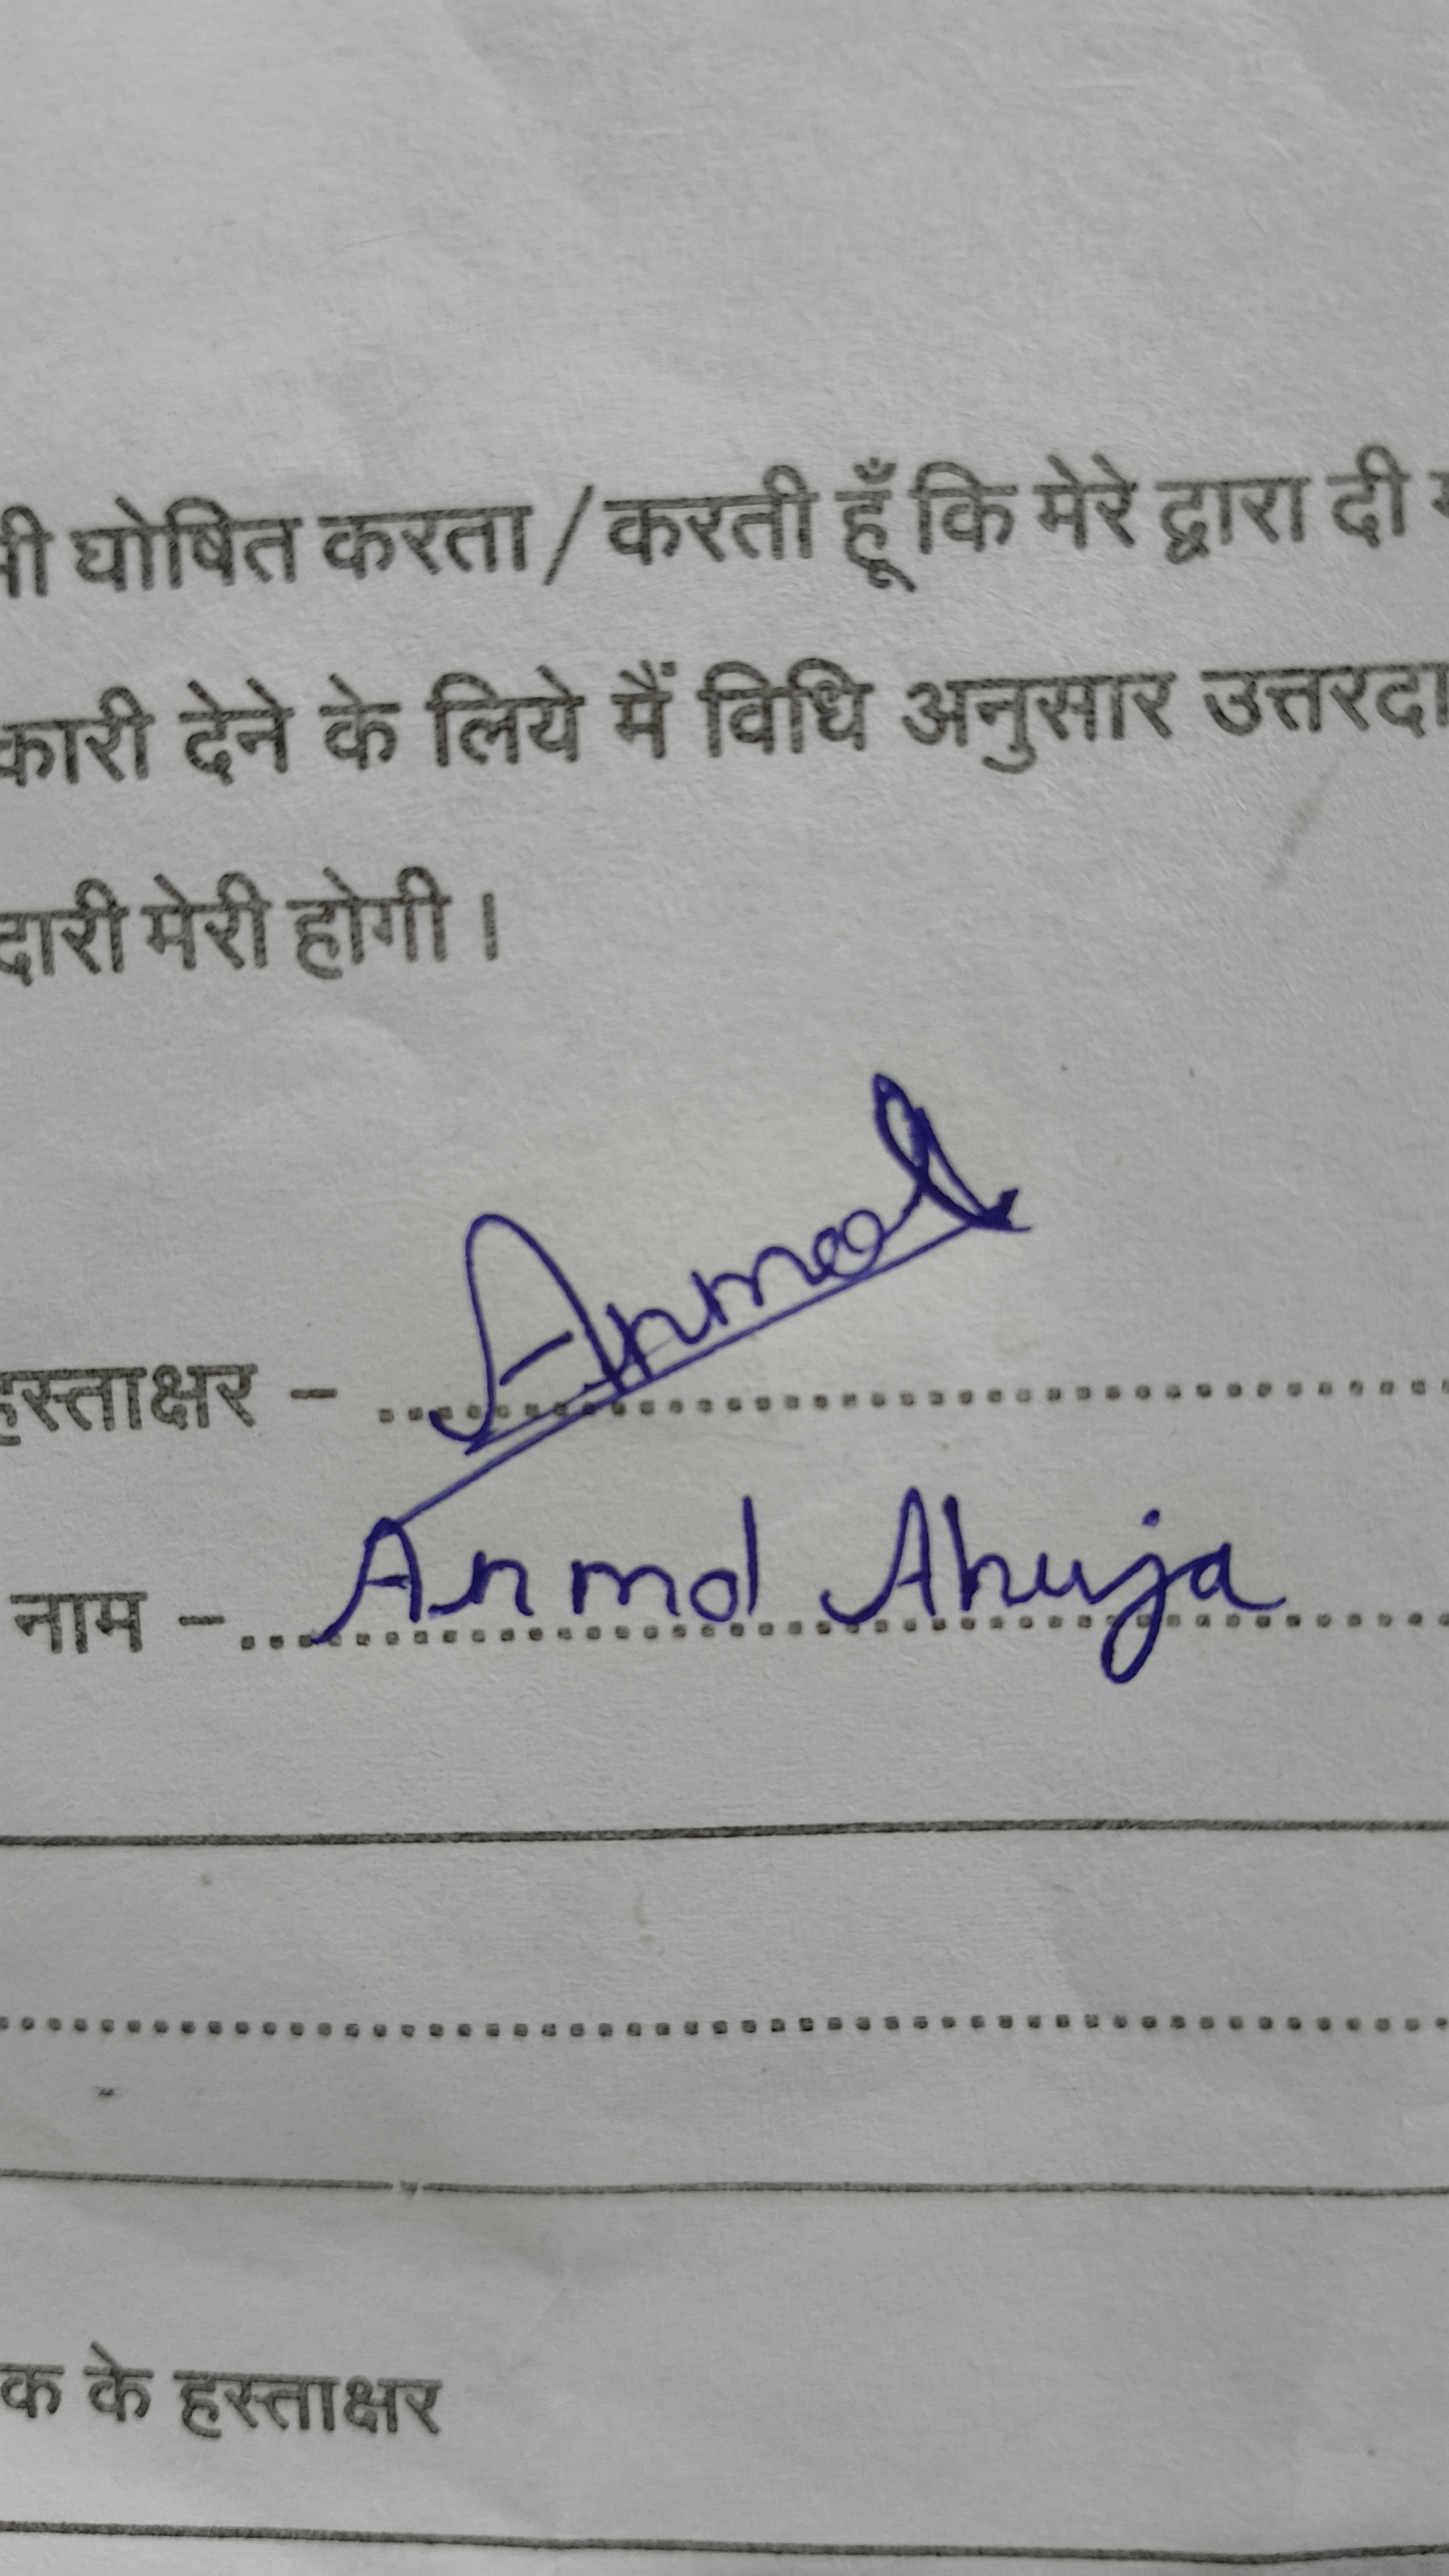 भी घोषित करता / करती हूँ कि मेरे द्वारा दी
कारी देने के लिये मैं विधि अनुसार उत्तरदा
दारी मेरी होगी।
Anmol
हस्ताक्षर - ........................
नाम - Anmol Ahuja
........................
क के हस्ताक्षर